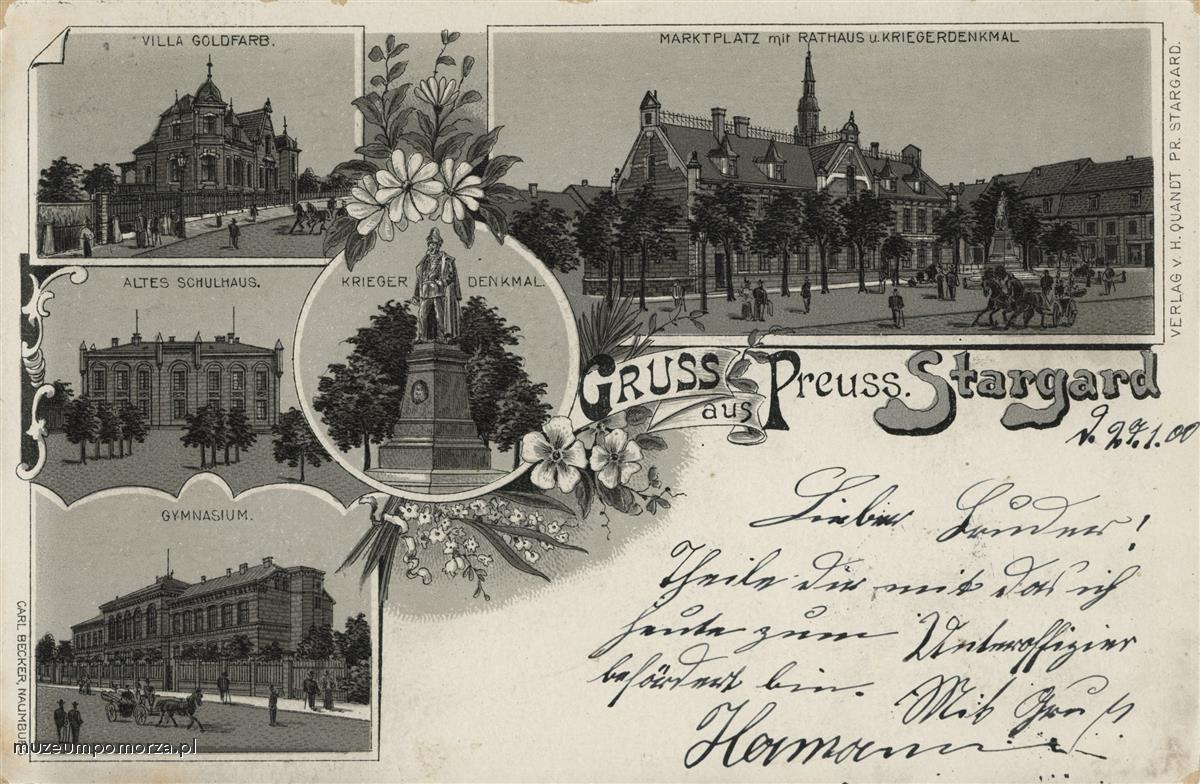 VILLA GOLDFARB.
MARKTPLATZ mit RATHAUS u. KRIEGERDENKMAL
ALTES SCHULHAUS.
KRIEGER DENKMAL.
GYMNASIUM.
GRUSS
aus
Preuss. Stargard
VERLAG v. H. QUANDT PR. STARGARD.
CARL BECKER, NAUMBUR
d. 27.1.00
Lieber Bruder!
Theile dir mit das ich
heute zum Unteroffizier
befördert bin. Mit Gruß
Hermann
muzeumpomorza.pl